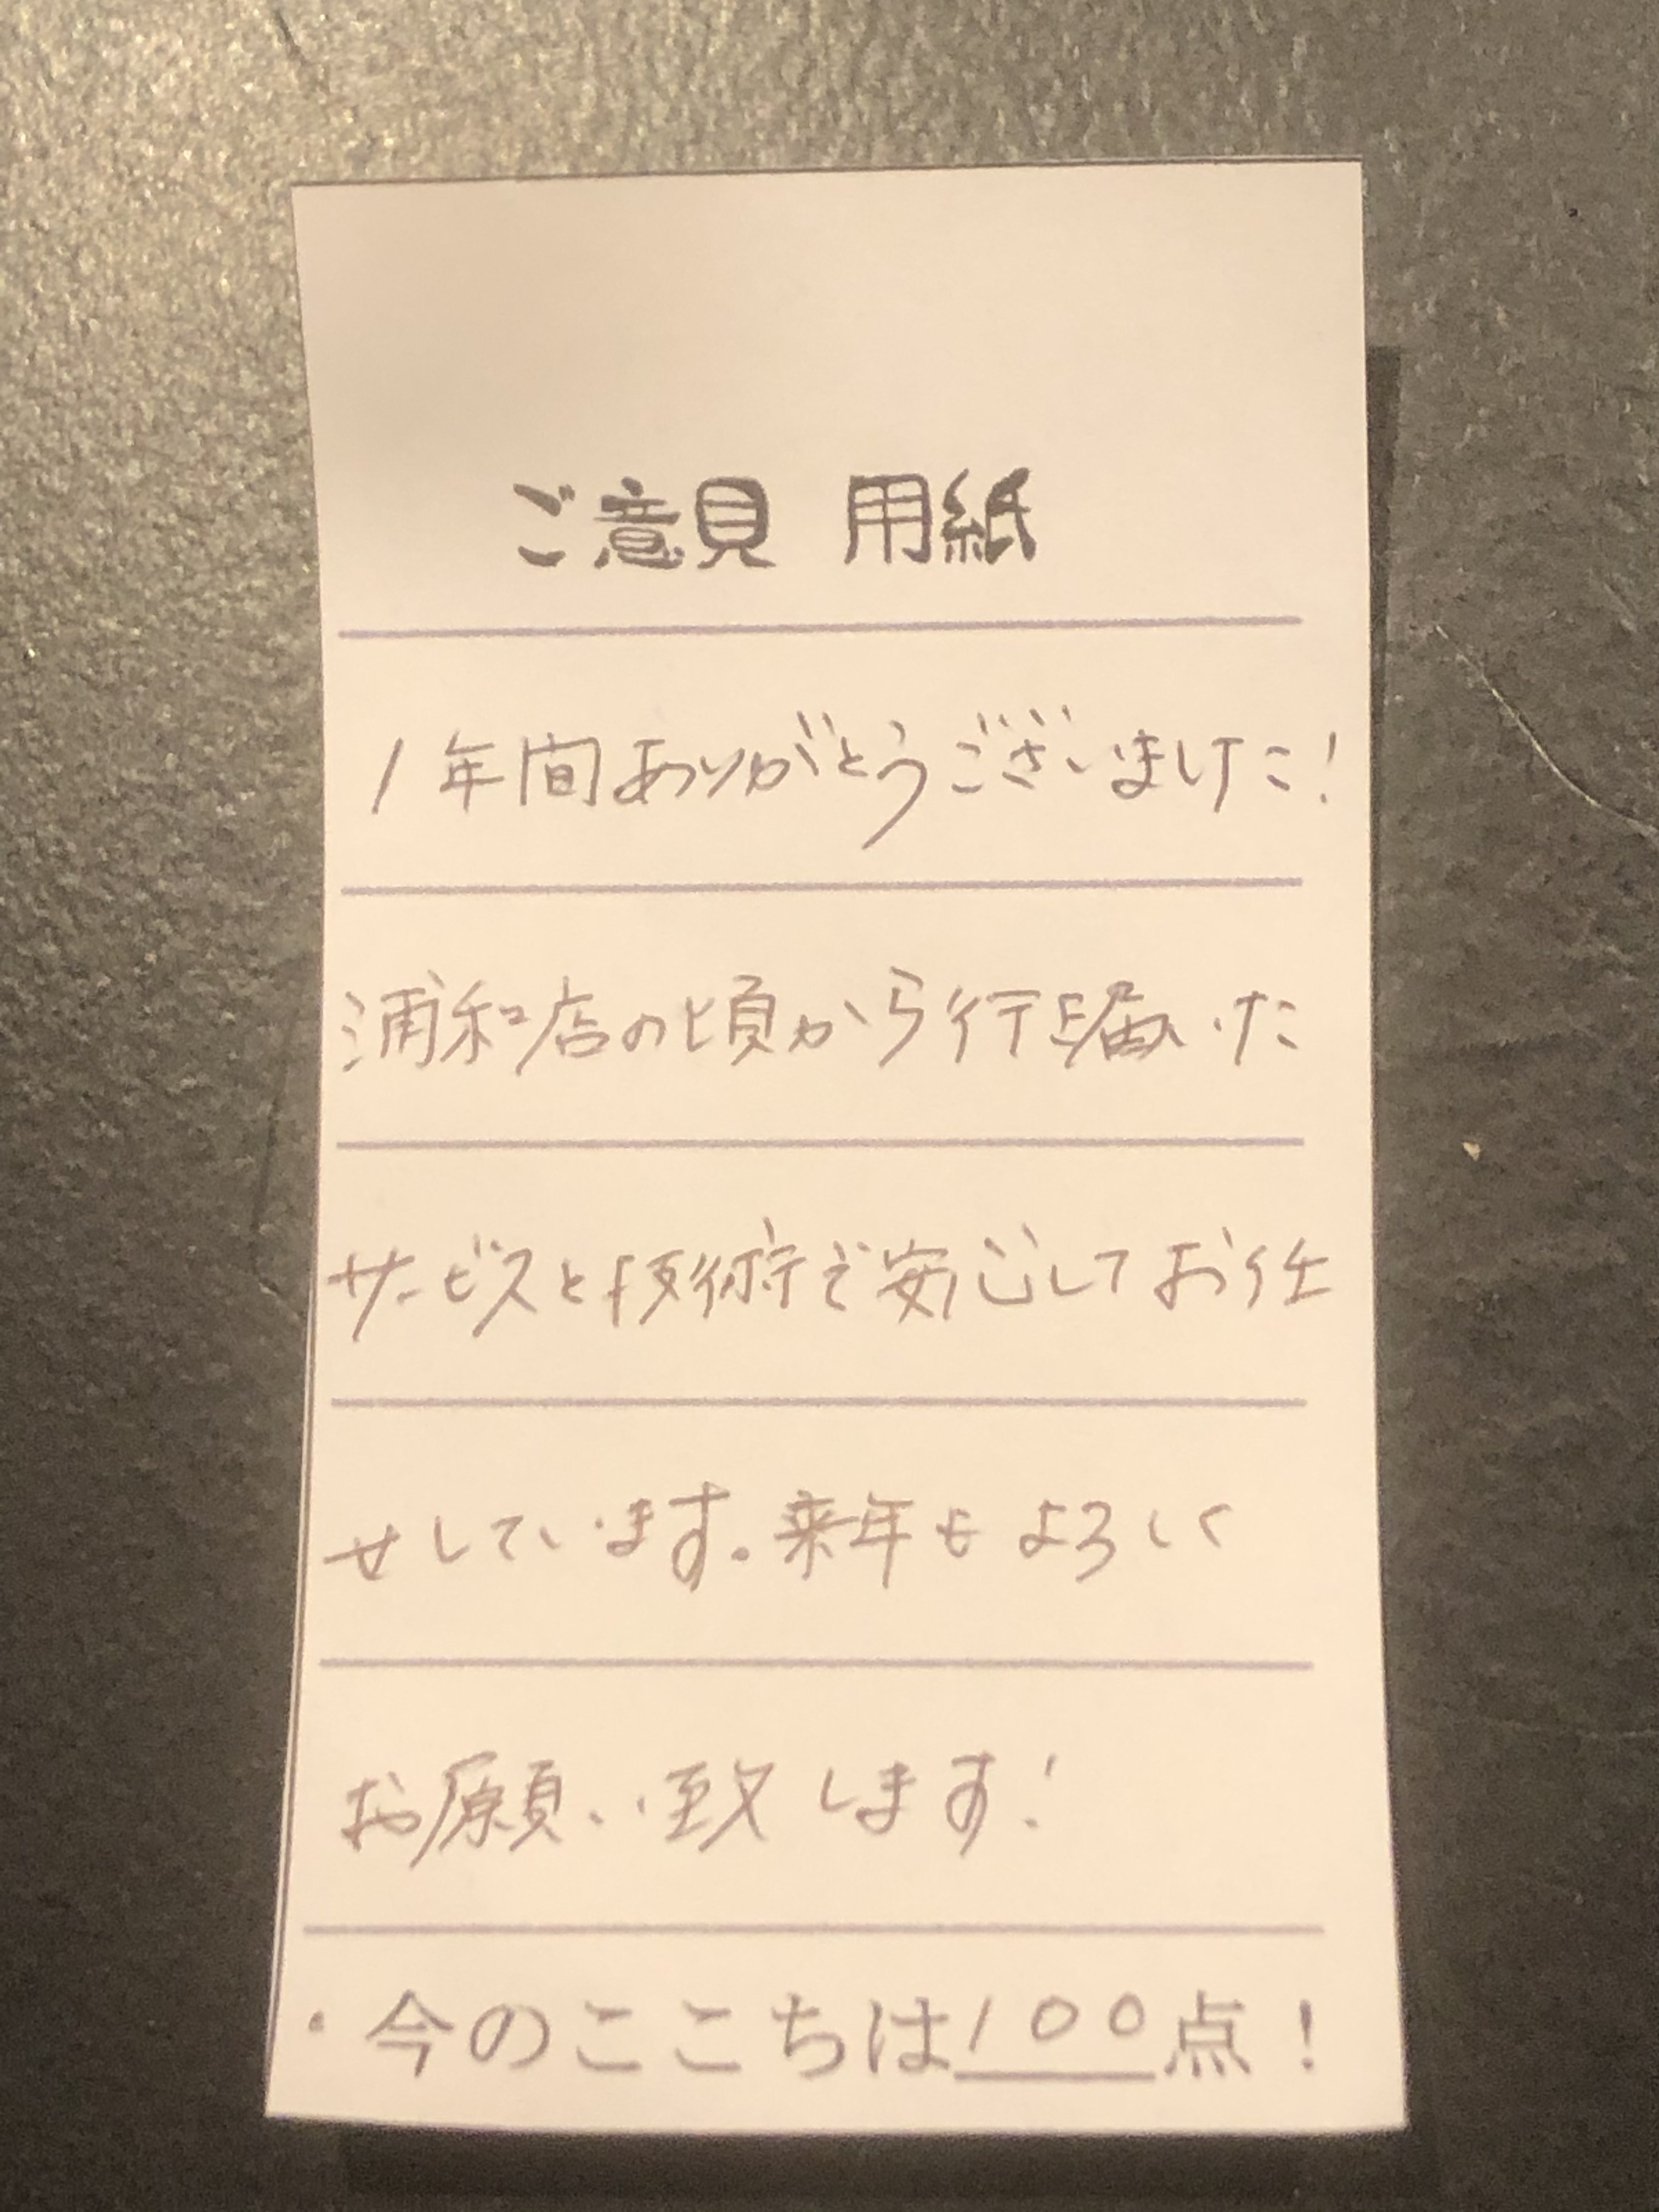 ご意見 用紙
1年間ありがとうございました!
浦和店の頃から行き届いた
サービスと技術で安心してお任
せしています。来年もよろしく
お願い致します!
・今のここちは100点!